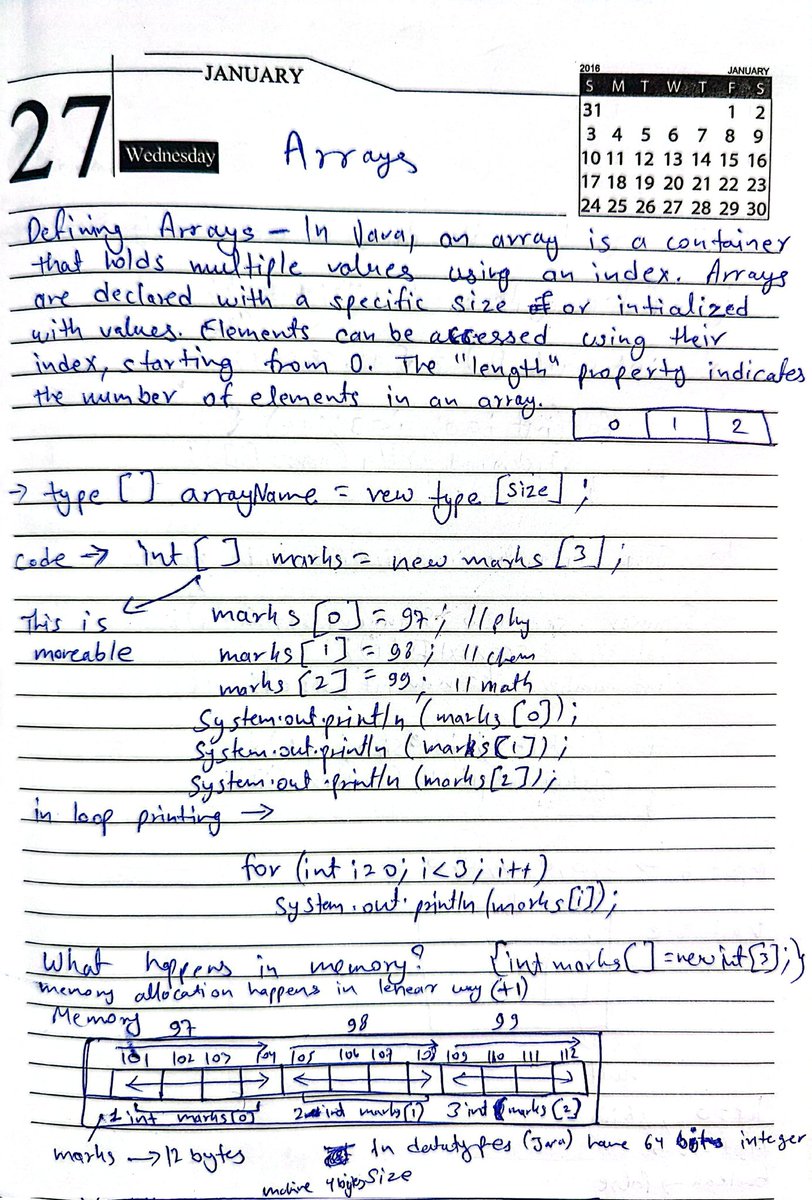 JANUARY
27
Wednesday
2016 JANUARY
S M T W T F S
31 1 2
3 4 5 6 7 8 9
10 11 12 13 14 15 16
17 18 19 20 21 22 23
24 25 26 27 28 29 30
Arrays
Defining Arrays - In Java, an array is a container
that holds multiple values using an index. Arrays
are declared with a specific size or intialized
with values. Elements can be accessed using their
index, starting from 0. The "length" property indicates
the number of elements in an array.
0 1 2
→ type [] arrayName = new type [size];
code → int [] marks = new marks [3];
This is
moveable
marks [0] = 97; // phy
marks [1] = 98; // chem
marks [2] = 99; // math
System.out.println (marks [0]);
System.out.println (marks [1]);
System.out.println (marks[2]);
in loop printing →
for (int i=0; i<3; i++)
System.out.println (marks[i]);
What happens in memory? {int marks[] = new int[3];}
memory allocation happens in lenear way (+1)
Memory 97 98 99
101 102 103 104 105 106 107 108 109 110 111 112
1 int marks[0] 2 int marks[1] 3 int marks[2]
marks → 12 bytes
In datatypes (Java) have 64 integer
4 bytes size